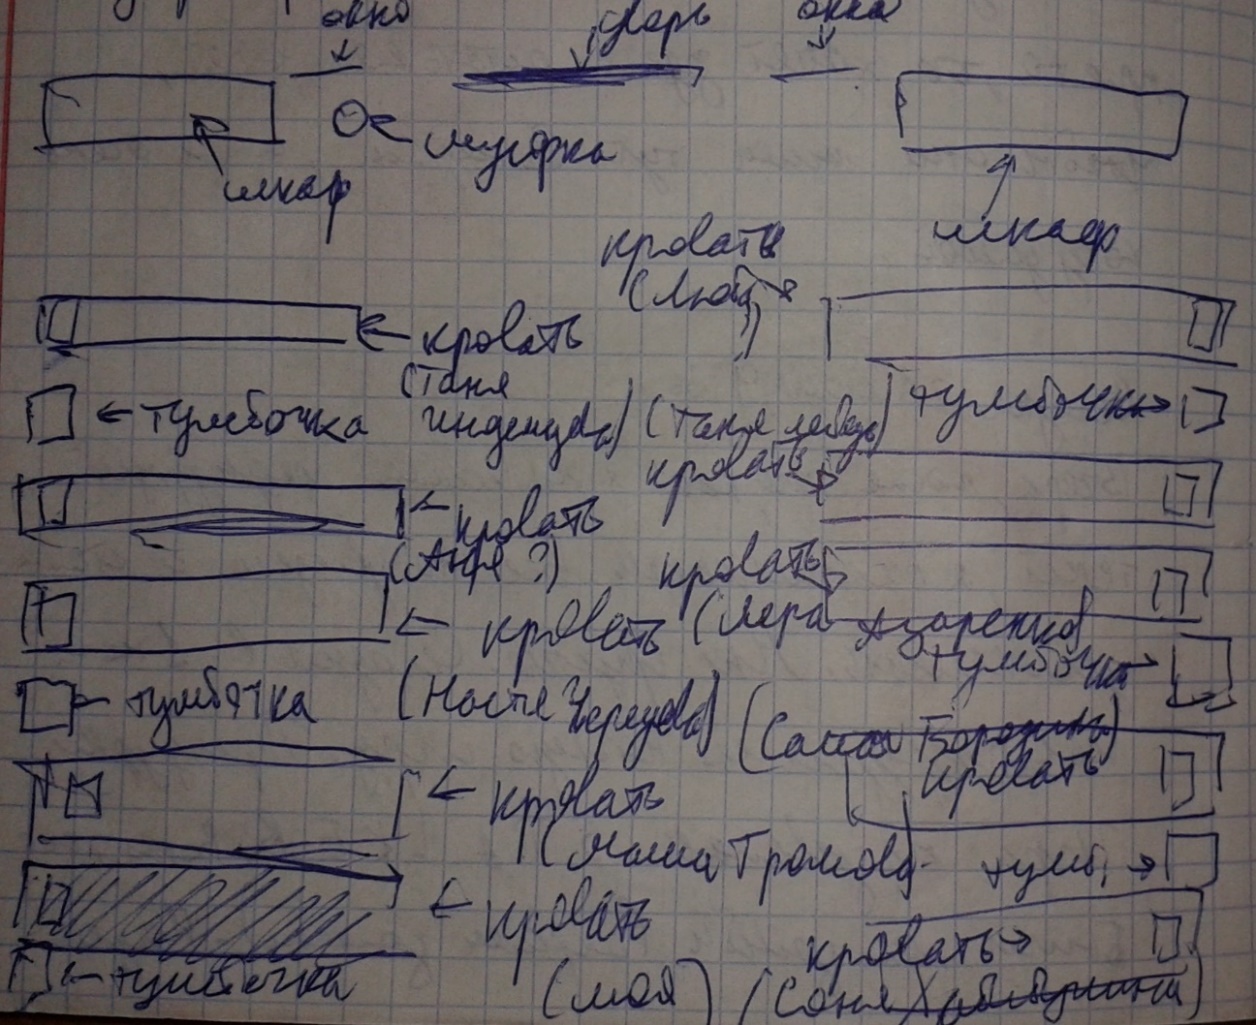 окно дверь окна
шкаф
шкаф
кровать
(Люба
?)
кровать
(Таня
тумбочка
тумбочка
(Таня лебедь)
кровать
кровать
(Аня ?)
кровать
кровать (Лера Азаренко)
тумбочка
тумбочка (Настя Черецова)
(Саша Бородины)
кровать
кровать
(Маша Громова) тумб.
кровать
кровать
тумбочка (моя) (Соня